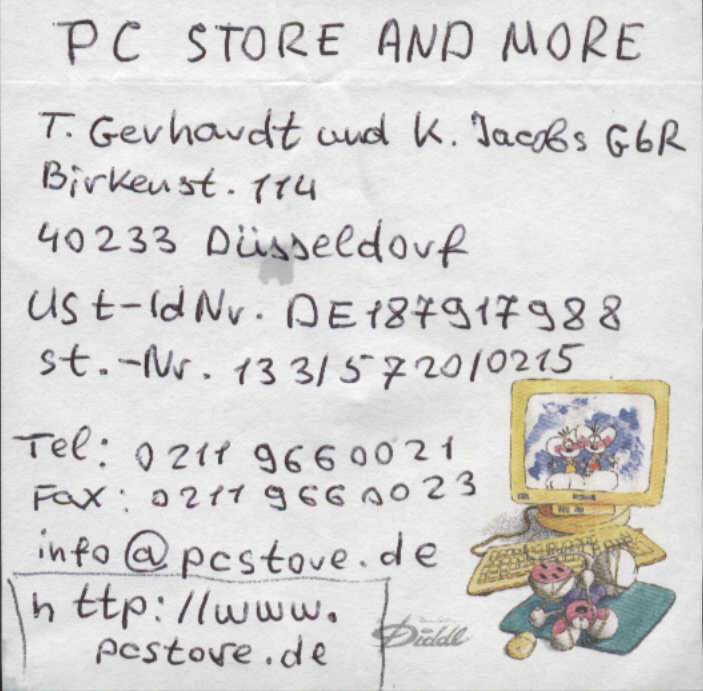 PC STORE AND MORE
T. Gerhardt und K. Jacobs GbR
Birkenst. 114
40233 Düsseldorf
USt-IdNr. DE187917988
St.-Nr. 133/5720/0215
Tel: 0211 9660021
Fax: 0211 9660023
info@pcstore.de
http://www.
pcstore.de
Diddl